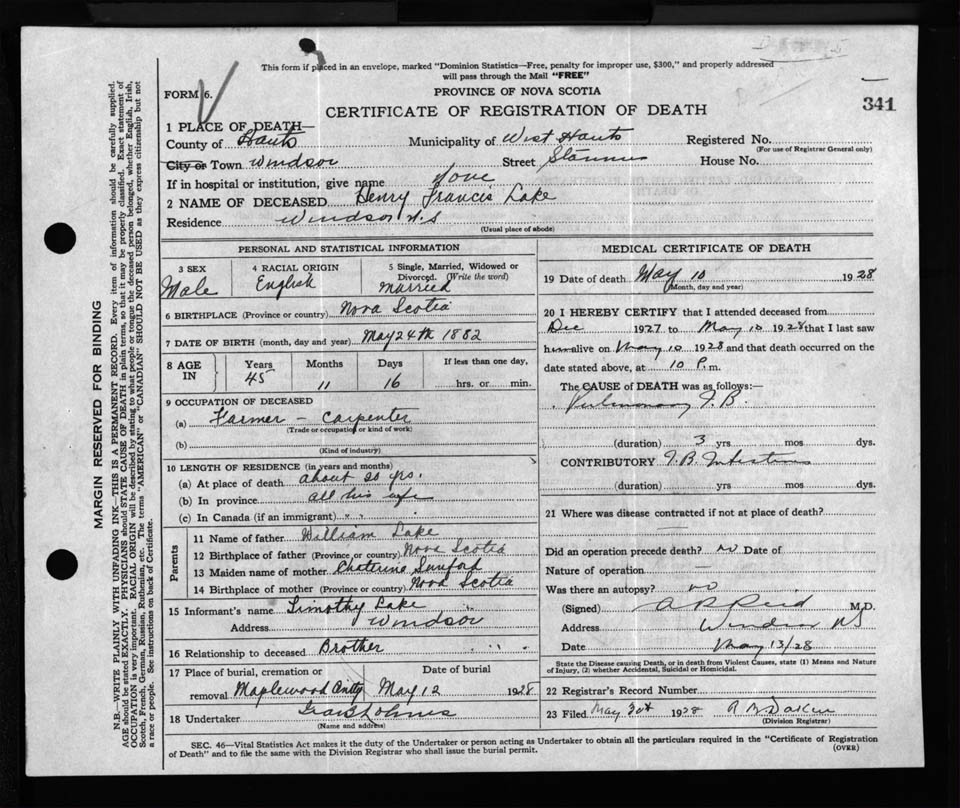 This form if placed in an envelope, marked "Dominion Statistics—Free, penalty for improper use, $300," and properly addressed
will pass through the Mail "FREE"
FORM 6.
PROVINCE OF NOVA SCOTIA
341
CERTIFICATE OF REGISTRATION OF DEATH
1 PLACE OF DEATH—
County of Hants Municipality of West Hants Registered No.
(For use of Registrar General only)
City or Town Windsor Street House No.
If in hospital or institution, give name
2 NAME OF DECEASED Henry Francis Lake
Residence Windsor N.S
(Usual place of abode)
PERSONAL AND STATISTICAL INFORMATION
3 SEX 4 RACIAL ORIGIN 5 Single, Married, Widowed or
Divorced. (Write the word)
Male English Married
6 BIRTHPLACE (Province or country) Nova Scotia
7 DATE OF BIRTH (month, day and year) May 24th 1882
8 AGE IN Years Months Days If less than one day,
45 11 16 hrs. or min.
9 OCCUPATION OF DECEASED
(a) Farmer — Carpenter
(Trade or occupation or kind of work)
(b)
(Kind of industry)
10 LENGTH OF RESIDENCE (in years and months)
(a) At place of death about 20 yrs.
(b) In province all his life
(c) In Canada (if an immigrant)
Parents
11 Name of father William Lake
12 Birthplace of father (Province or country) Nova Scotia
13 Maiden name of mother
14 Birthplace of mother (Province or country) Nova Scotia
15 Informant's name Timothy Lake
Address Windsor
16 Relationship to deceased Brother
17 Place of burial, cremation or Date of burial
removal Maplewood May 12 1928
18 Undertaker
(Name and address)
MEDICAL CERTIFICATE OF DEATH
19 Date of death May 10 1928
(Month, day and year)
20 I HEREBY CERTIFY that I attended deceased from
Dec 1927 to May 10 1928 that I last saw
him alive on May 10 1928 and that death occurred on the
date stated above, at 10 P. m.
The CAUSE of DEATH was as follows:—
Pulmonary T.B.
(duration) 3 yrs mos dys.
CONTRIBUTORY T.B.
(duration) yrs mos dys.
21 Where was disease contracted if not at place of death?
—
Did an operation precede death? no Date of
Nature of operation —
Was there an autopsy? no
(Signed) A R Reid M.D.
Address Windsor NS
Date May 13/28
State the Disease causing Death, or in death from Violent Causes, state (1) Means and Nature
of Injury, (2) whether Accidental, Suicidal or Homicidal.
22 Registrar's Record Number
23 Filed May 1928
(Division Registrar)
SEC. 46—Vital Statistics Act makes it the duty of the Undertaker or person acting as Undertaker to obtain all the particulars required in the "Certificate of Registration
of Death" and to file the same with the Division Registrar who shall issue the burial permit.
(OVER)
MARGIN RESERVED FOR BINDING
N.B.—WRITE PLAINLY WITH UNFADING INK—THIS IS A PERMANENT RECORD. Every item of information should be carefully supplied.
AGE should be stated EXACTLY. PHYSICIANS should STATE CAUSE OF DEATH in plain terms, so that it may be properly classified. Exact statement of
OCCUPATION is very important. RACIAL ORIGIN will be described by stating to what people or tongue the deceased person belonged, whether English, Irish,
Scotch, French, German, Russian, Ruthenian, etc. The terms "AMERICAN" or "CANADIAN" SHOULD NOT BE USED as they express citizenship but not
a race or people. See instructions on back of Certificate.